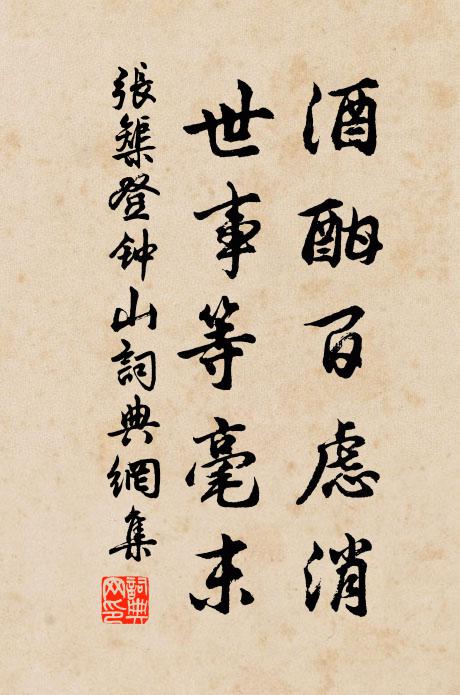 酒酣百慮消
世事等毫末
張榘登钟山詞典網集
詞典网印